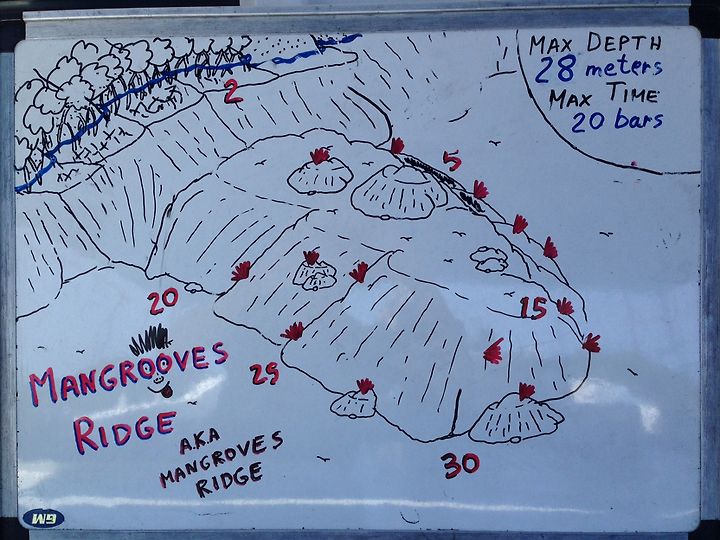 MAX DEPTH
28 meters
MAX TIME
20 bars
2
5
20
15
MANGROOVES
RIDGE
25
A.K.A
MANGROVES
RIDGE
30